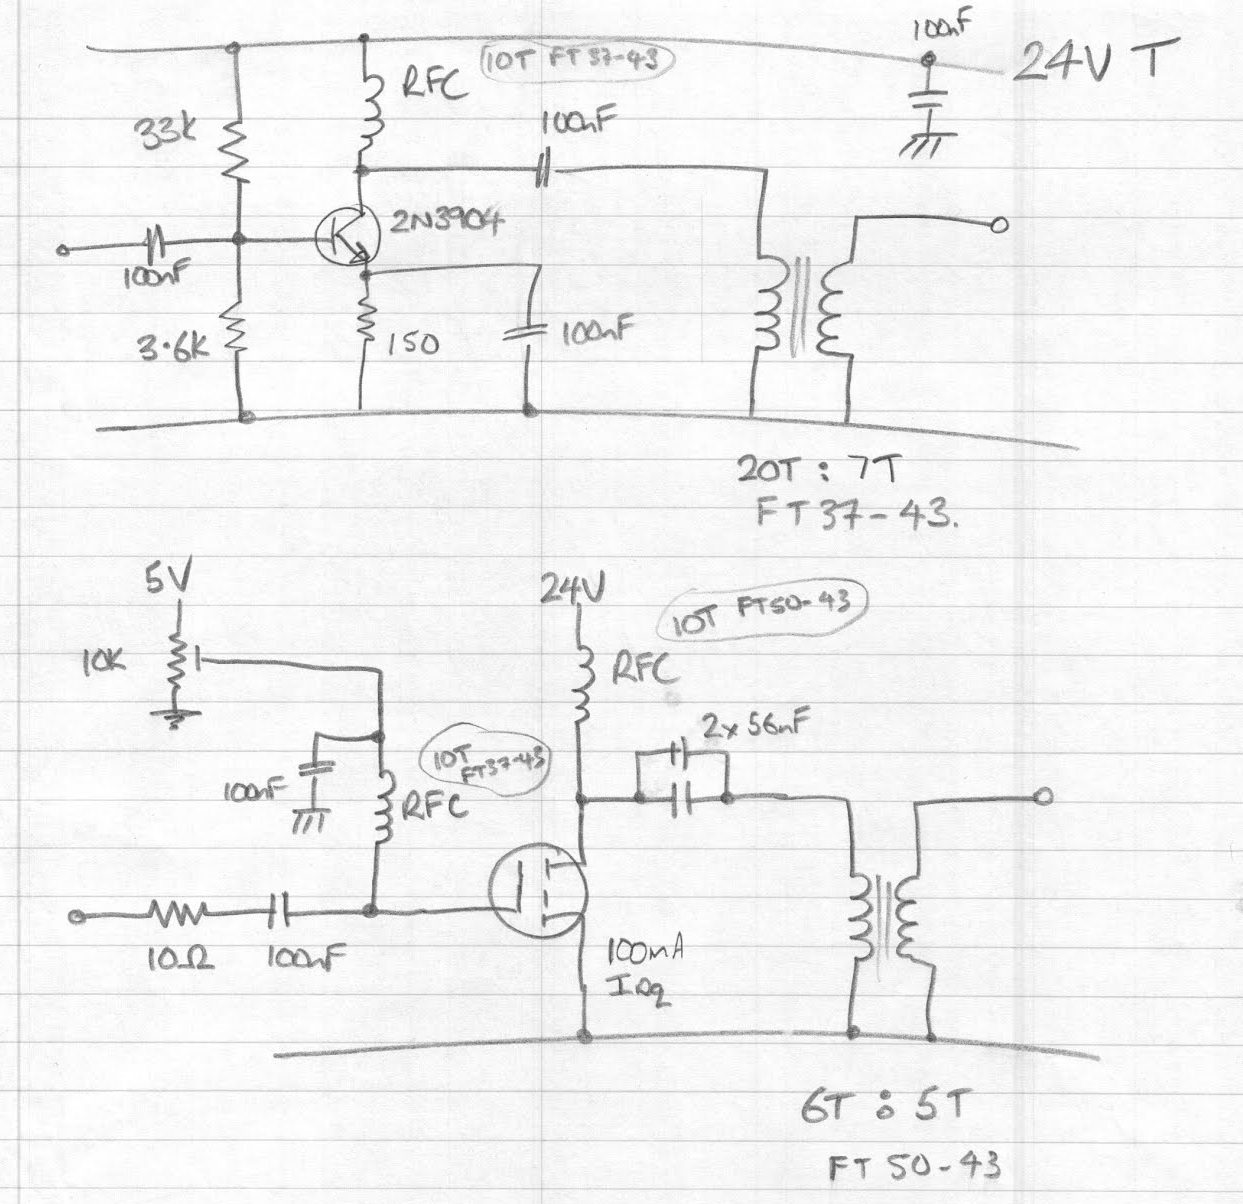 100nF
24V T
10T FT37-43
RFC
100nF
33K
2N3904
100nF
3.6K
150
100nF
20T : 7T
FT37-43.
5V
24V
10T FT50-43
10K
RFC
2x56nF
10T
FT37-43
100nF
RFC
10Ω
100nF
100mA
IDq
6T : 5T
FT 50-43